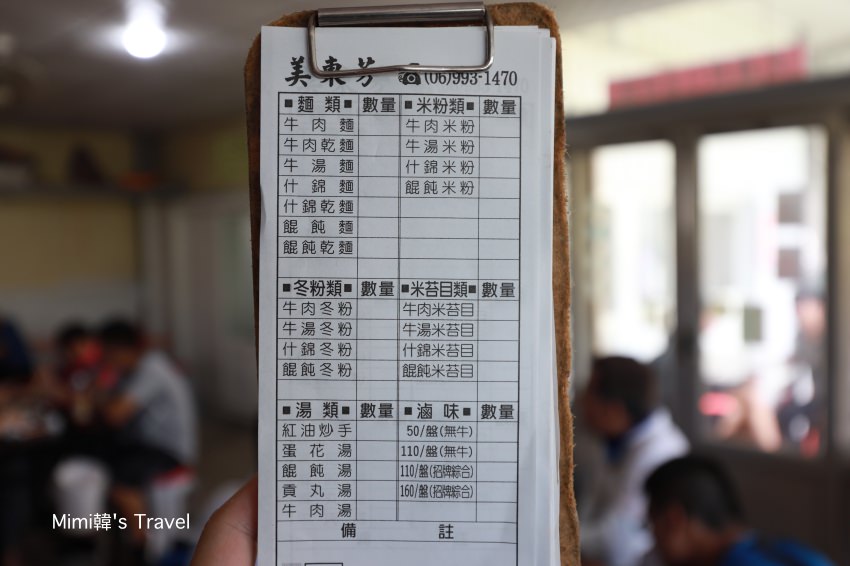 美東芳 ☎(06)993-1470
■麵類■ 數量 ■米粉類■ 數量
牛肉麵 牛肉米粉
牛肉乾麵 牛湯米粉
牛湯麵 什錦米粉
什錦麵 餛飩米粉
什錦乾麵
餛飩麵
餛飩乾麵
■冬粉類■ 數量 ■米苔目類■ 數量
牛肉冬粉 牛肉米苔目
牛湯冬粉 牛湯米苔目
什錦冬粉 什錦米苔目
餛飩冬粉 餛飩米苔目
■湯類■ 數量 ■滷味■ 數量
紅油炒手 50/盤(無牛)
蛋花湯 110/盤(無牛)
餛飩湯 110/盤(招牌綜合)
貢丸湯 160/盤(招牌綜合)
牛肉湯
備註
Mimi韓's Travel